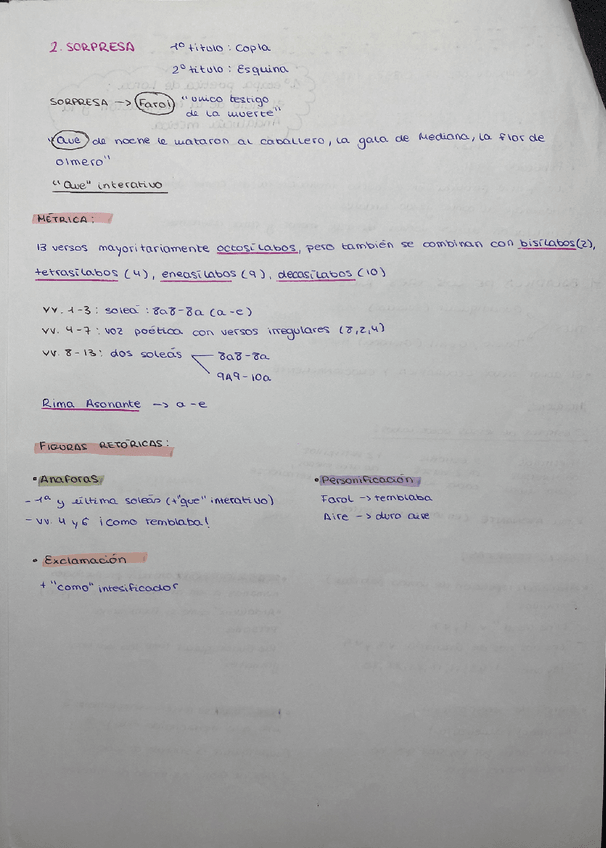 2. SORPRESA 1º título : Copla
2º título : Esquina
SORPRESA -> Farol "único testigo
de la muerte"
"Que de noche le mataron al caballero, la gala de Mediana, la flor de
olmero"
"Que" interativo
MÉTRICA:
13 versos mayoritariamente octosílabos, pero también se combinan con bisílabos (2),
tetrasílabos (4), eneasílabos (9), decasílabos (10)
vv. 1-3: soleá : 8a8-8a (a-e)
vv. 4-7: voz poética con versos irregulares (8,2,4)
vv. 8-13: dos soleás 8a8-8a
9A9-10a
Rima Asonante -> a-e
FIGURAS RETÓRICAS:
• Anáforas
- 1ª y última soleás (+"que" interativo)
- vv. 4 y 6 ¡Como temblaba!
• Personificación
Farol -> temblaba
Aire -> duro aire
• Exclamación
+ "como" intesificador